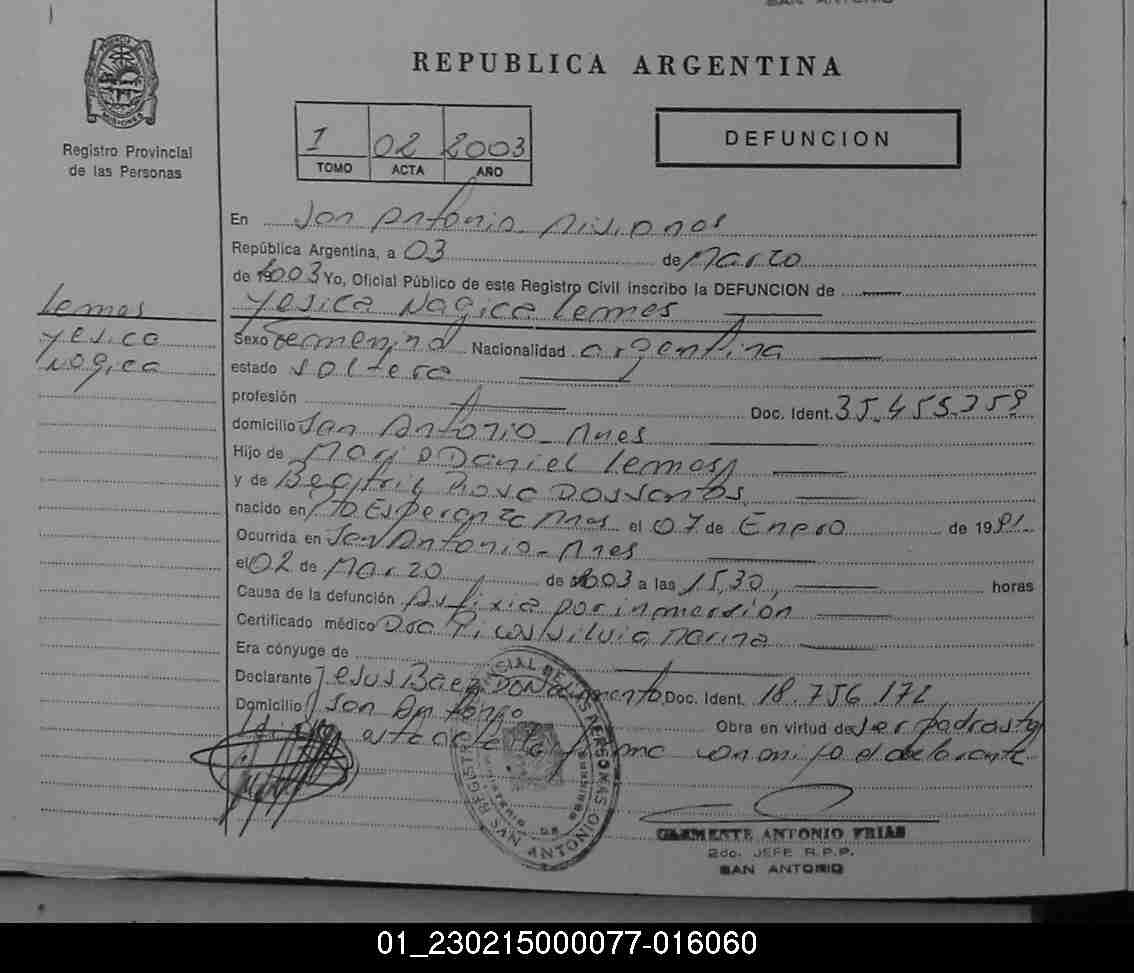 SAN ANTONIO
REPUBLICA ARGENTINA
Registro Provincial
de las Personas
1 02 2003
TOMO ACTA AÑO
DEFUNCION
En San Antonio Misiones
República Argentina, a 03 de Marzo
de 2003 Yo, Oficial Público de este Registro Civil inscribo la DEFUNCION de
Yesica Nagica Lemes
Lemes
Yesica
Nagica
Sexo Femenino Nacionalidad argentina
estado soltera
profesión Doc. Ident. 35.455.359
domicilio San Antonio - Mnes
Hijo de Mario Daniel Lemes
y de Beatriz Rosa Dossantos
nacido en Pto Esperanza Mnes el 07 de Enero de 1991
Ocurrida en San Antonio - Mnes
el 02 de Marzo de 2003 a las 15,30 horas
Causa de la defunción Asfixia por inmersion
Certificado médico Dra Silvia Marina
Era cónyuge de
Declarante Jesus Baez Doc. Ident. 18.756.172
Domicilio San Antonio Obra en virtud de ser padrastro
esta acta la firma conmigo el declarante
REGISTRO PROVINCIAL DE LAS PERSONAS
MINISTERIO DE GOBIERNO
SAN ANTONIO
CLEMENTE ANTONIO FRIAS
2do. JEFE R.P.P.
SAN ANTONIO
01_230215000077-016060